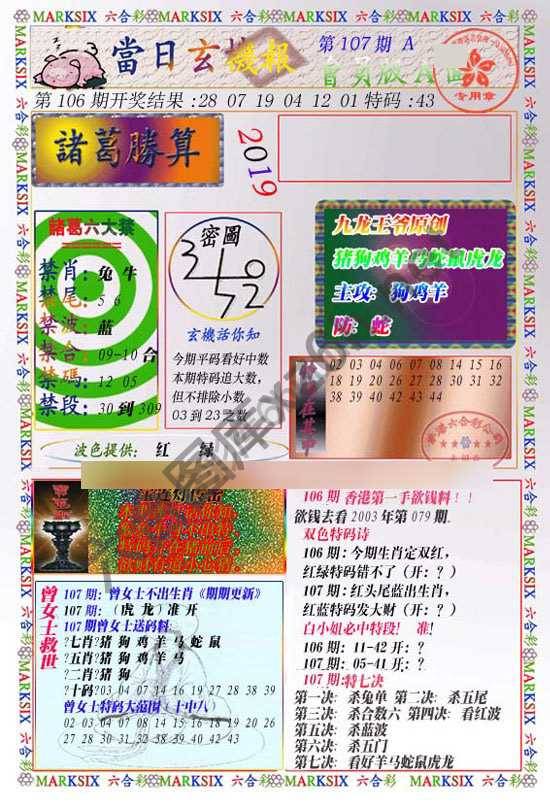 MARKSIX 六合彩 MARKSIX 六合彩 MARKSIX 六合彩 MARKSIX 六合彩
當日玄機報
第107期 A
會員版A面
第106期开奖结果:28 07 19 04 12 01特码:43
专用章
諸葛勝算
2019
諸葛六大禁
禁肖:兔牛
禁尾:5 6
禁波:藍
禁合:09-10合
禁碼:12 05
禁段:30到309
密圖
玄機話你知
今期平码看好中数
本期特码追大数,
但不排除小数
03到23之数
九龙王爷原创
猪狗鸡羊马蛇鼠虎龙
主攻: 狗鸡羊
防: 蛇
02 03 04 06 07 08 14 15 16
18 19 20 26 28 29 30 31 32
38 39 40 42 43 44
波色提供: 红 绿
106期:香港第一手欲钱料!!
欲钱去看2003年第079期.
双色特码诗
106期:今期生肖定双红,
红绿特码错不了(开:?)
107期:红头尾蓝出生肖,
红蓝特码发大财(开:?)
白小姐必中特段! 准!
106期: 11-42 开:?
107期: 05-41 开:?
107期:特七决
第一决: 杀兔单 第二决: 杀五尾
第三决: 杀合数六 第四决: 看红波
第五决: 杀蓝波
第六决: 杀五门
第七决: 看好羊马蛇鼠虎龙
曾女士救世
107期:曾女士不出生肖《期期更新》
107期:(虎龙)准开
107期曾女士送码料:
?七肖?猪狗鸡羊马蛇鼠
?五肖?猪狗鸡羊马
?二肖?猪狗
?十码?03 04 07 14 16 19 27 28 38 39
曾女士特码大范围(十中八)
02 03 04 07 08 14 15 16 18 19 20 26
27 28 30 31 32 38 39 40 42 43
MARKSIX 六合彩 MARKSIX 六合彩 MARKSIX 六合彩 MARKSIX 六合彩